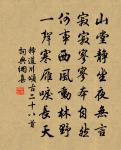 山堂靜坐夜無言
寂寂寥寥本自然
何事西風動林野
一聲寒雁唳長天
釋道川頌古二十八首
詞典網集